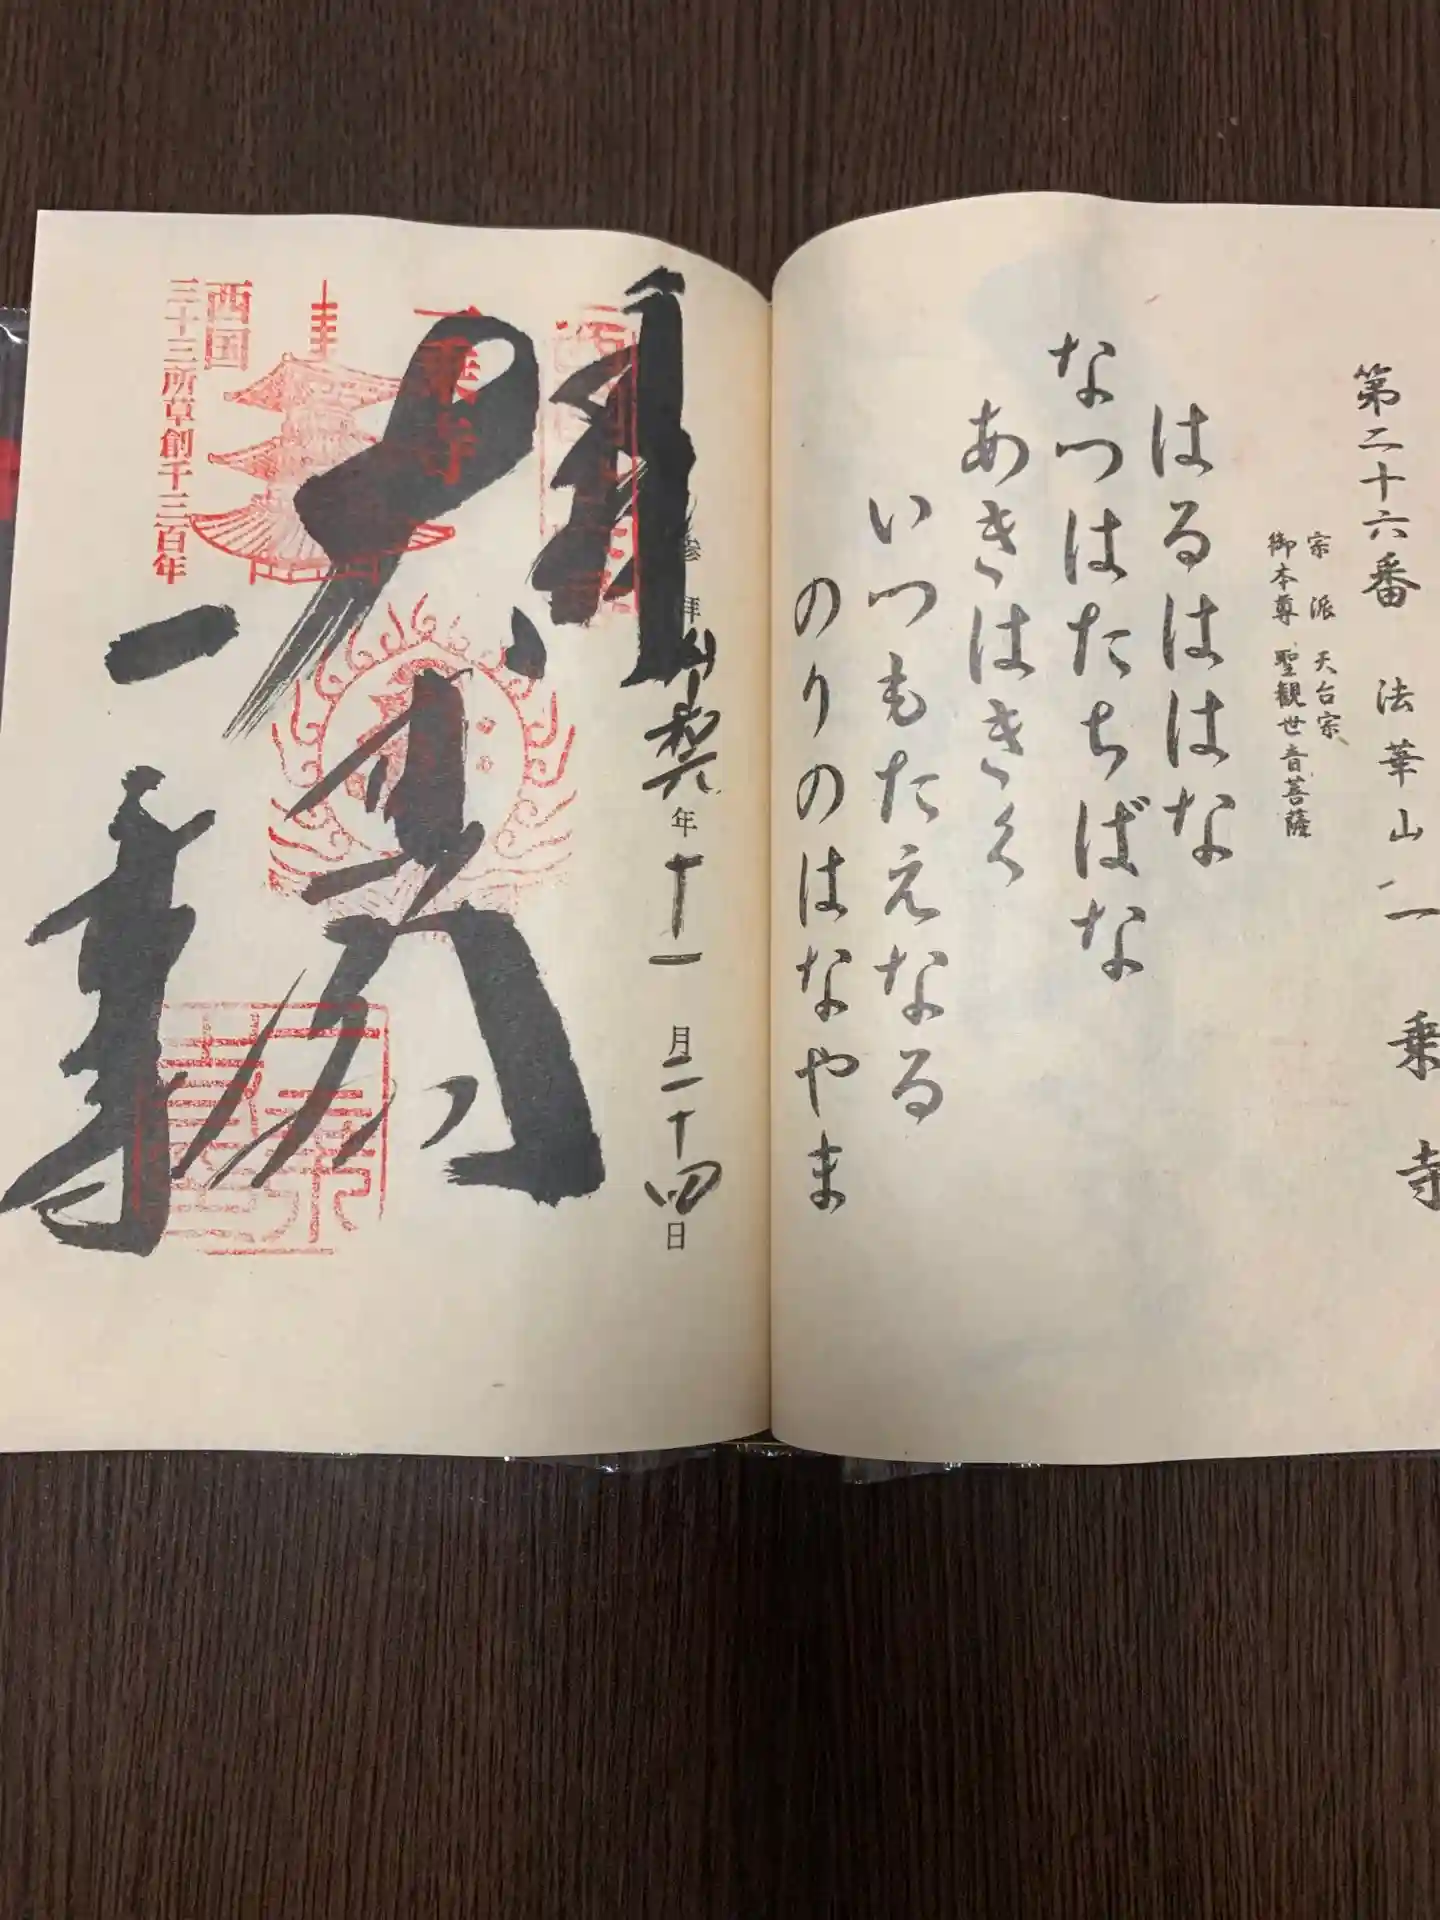 第二十六番 法華山 一乗寺
宗派 天台宗
御本尊 聖観世音菩薩
はるははな
なつはたちばな
あきはきく
いつもたえなる
のりのはなやま
参拝 令和六年十一月二十四日
一乗寺
西国
三十三所草創千三百年